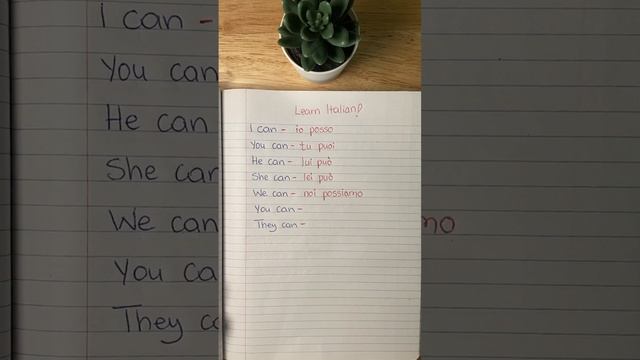 Learn Italian!
I can - io posso
You can - tu puoi
He can - lui può
She can - lei può
We can - noi possiamo
You can -
They can -